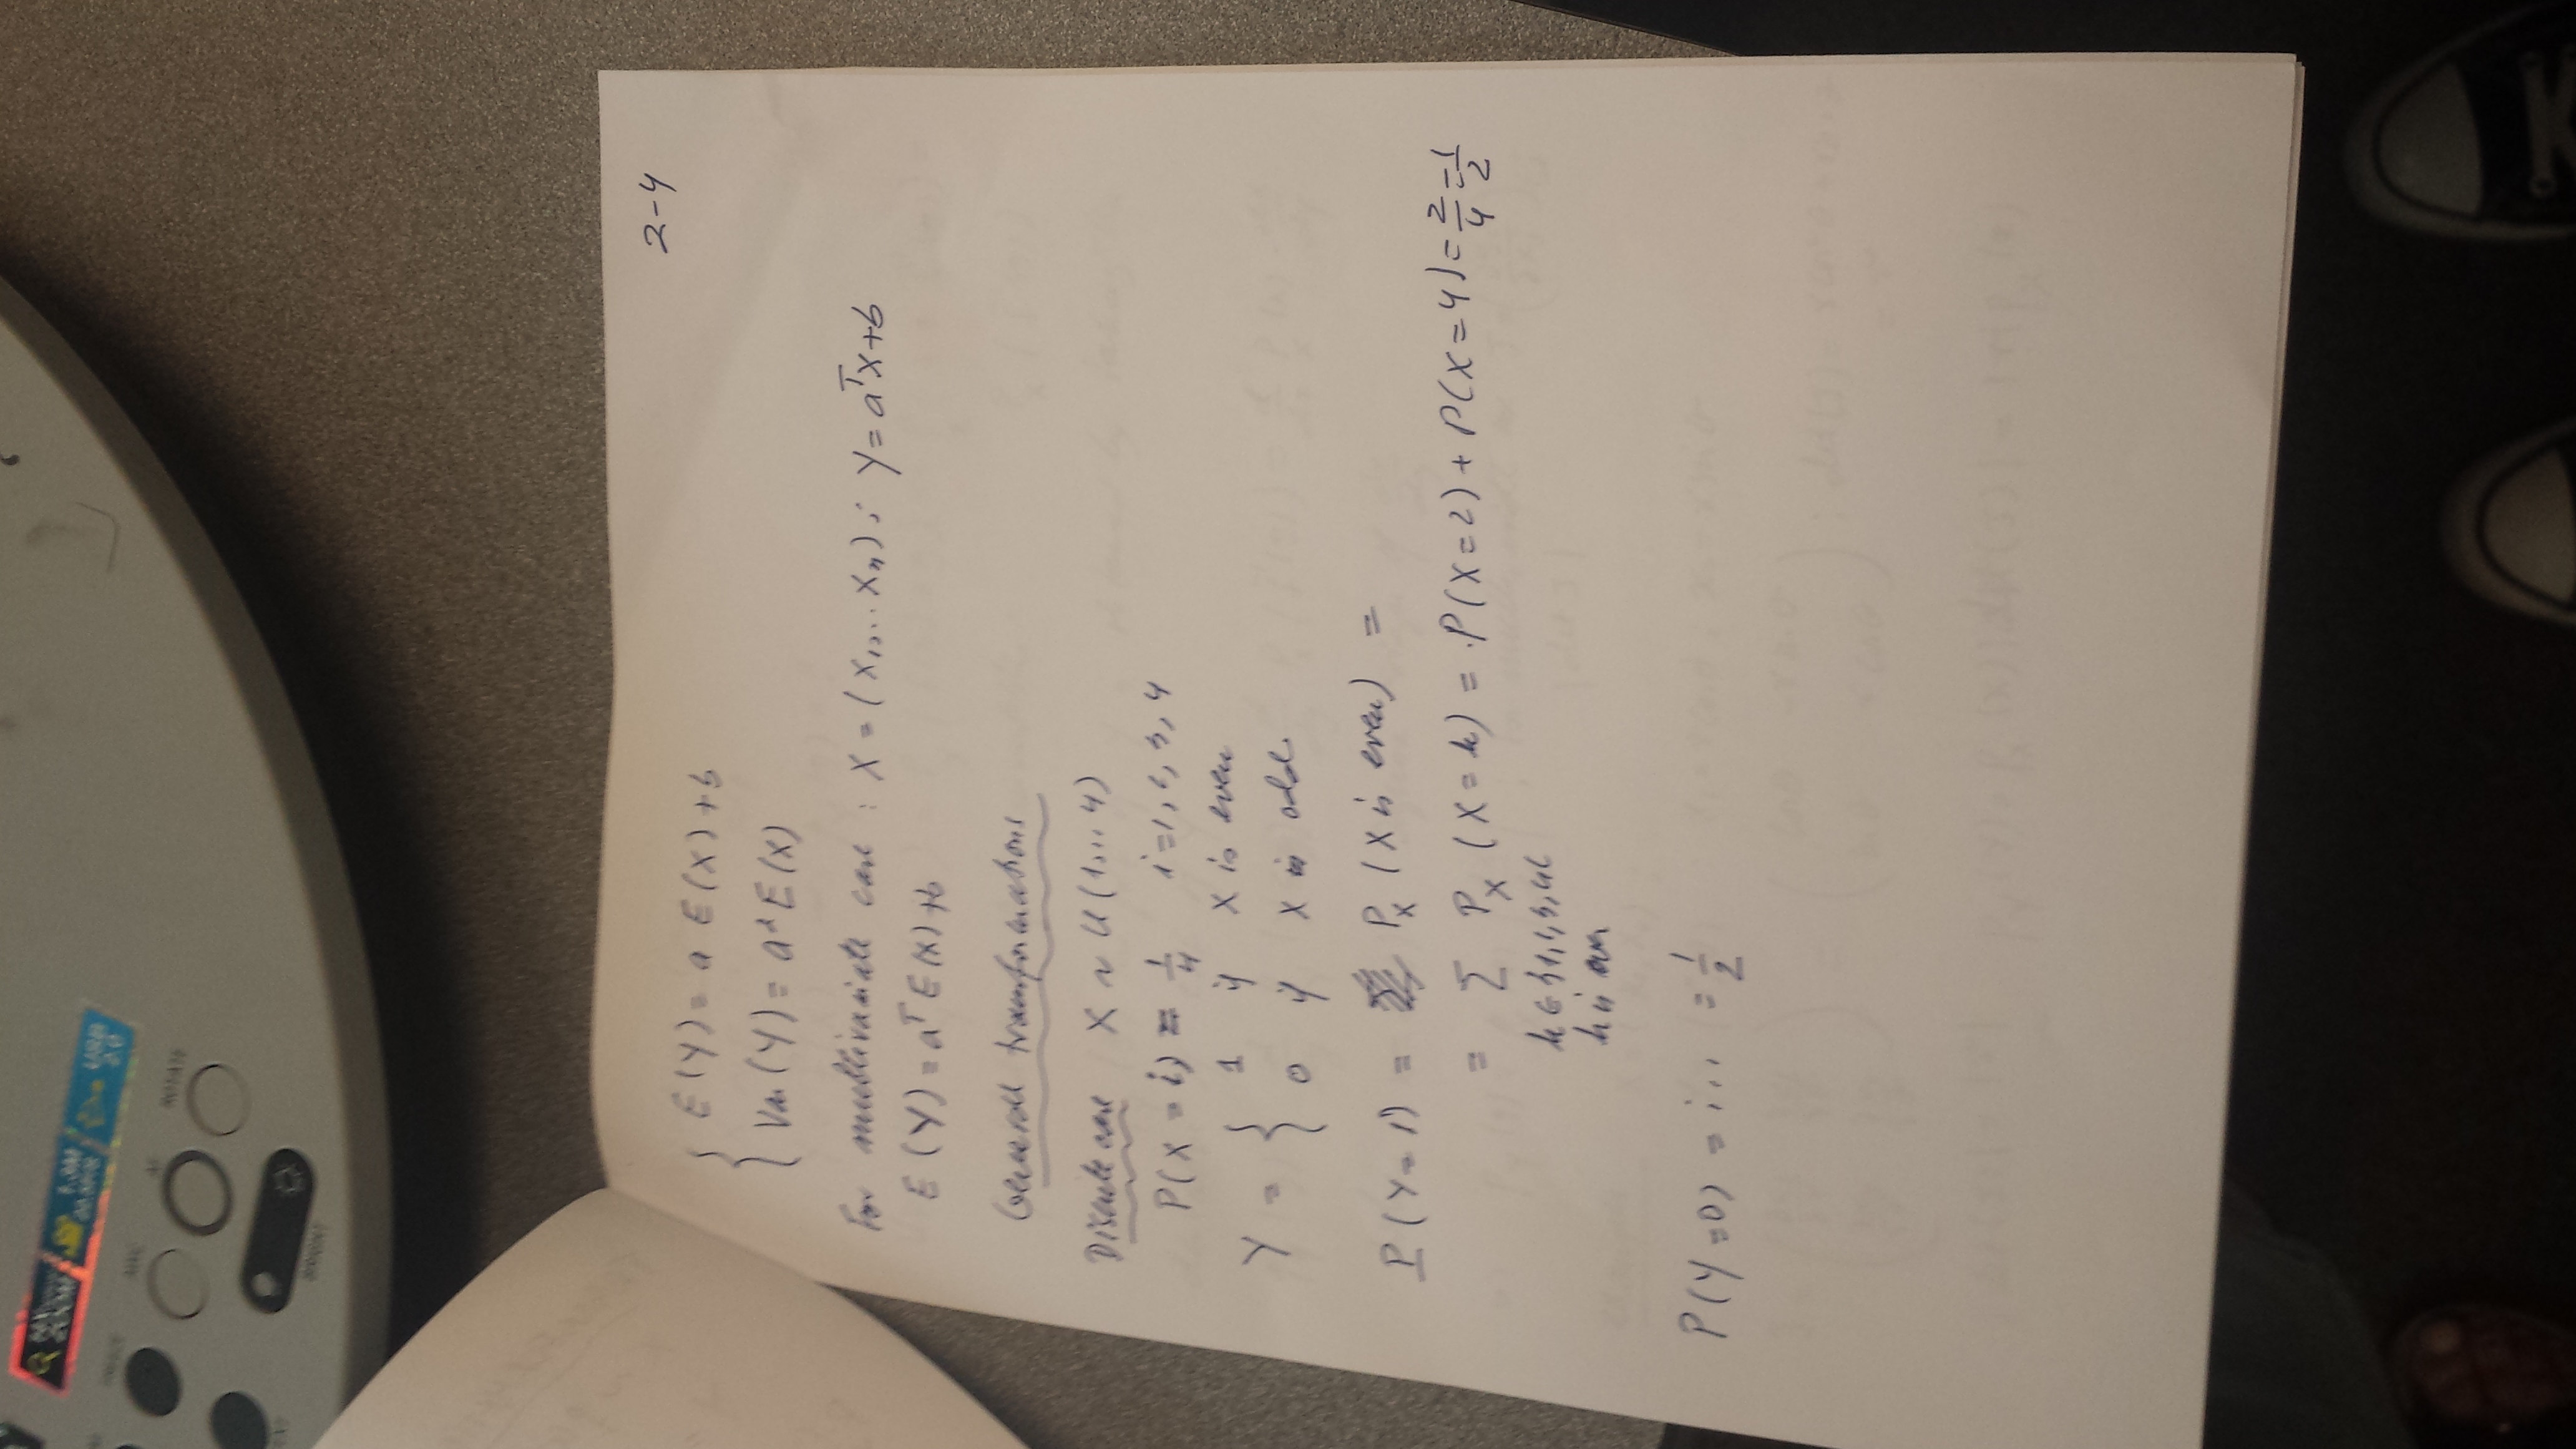 2-4
{ E(Y) = a E(X) + b
Var(Y) = a² E(X)
For multivariate case : X = (X1,... Xn); Y = aᵀX+b
E(Y) = aᵀE(X)+b
General transformations
Discrete case X ~ U(1,...4)
P(X = i) = 1/4 i=1,2,3,4
Y = { 1 if X is even
0 if X is odd
P(Y=1) = P_X (X is even) =
= Σ P_X (X=k) = P(X=2) + P(X=4) = 2/4 = 1/2
k∈{1,2,3,4}
k is even
P(Y=0) = ... = 1/2